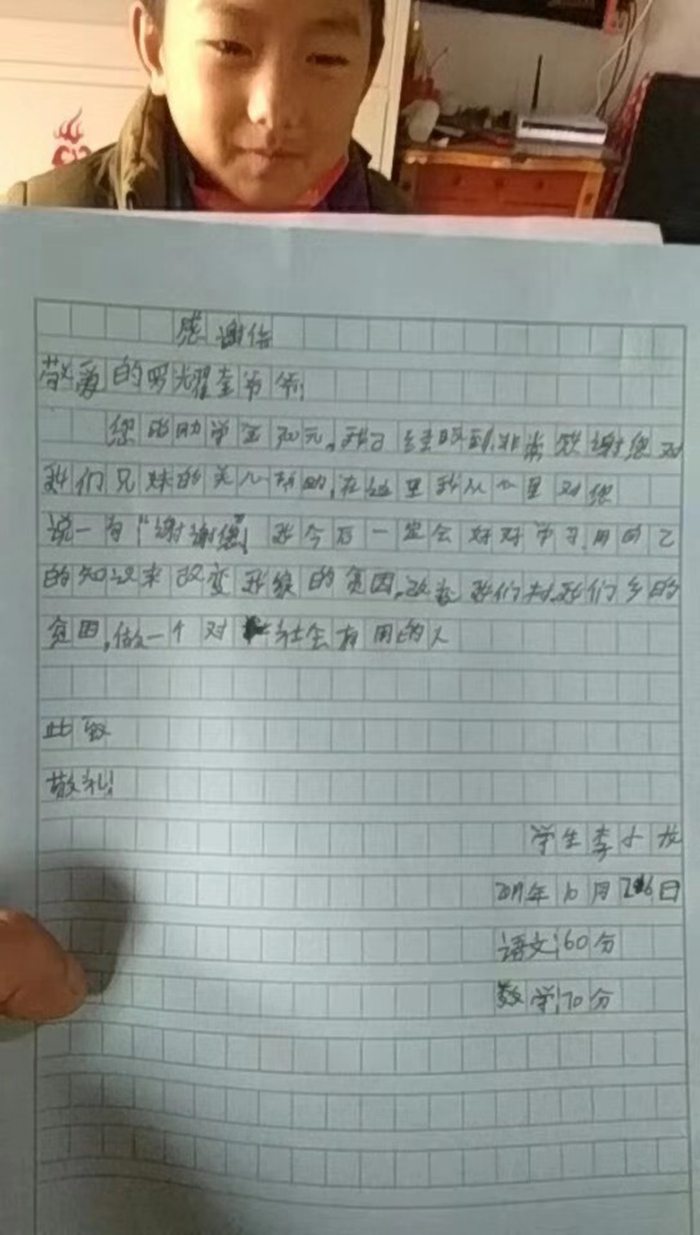 感谢信
敬爱的罗耀奎爷爷:
您的助学金700元,我已经收到,非常感谢您对
我们兄妹的关心帮助,在这里我从心里对您
说一句“谢谢您” 我今后一定会好好学习,用自己
的知识来改变我家的贫困,改变我们村,我们乡的
贫困,做一个对社会有用的人
此致
敬礼!
学生李小龙
年10月26日
语文:60分
数学:70分